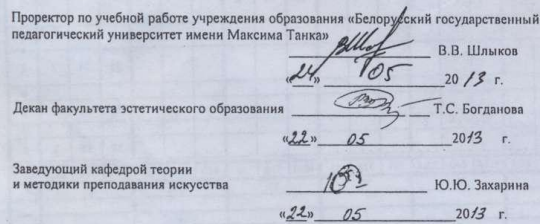 Проректор по учебной работе учреждения образования «Белорусский государственный
педагогический университет имени Максима Танка»
В.В. Шлыков
«24» 05 2013 г.
Декан факультета эстетического образования Т.С. Богданова
«22» 05 2013 г.
Заведующий кафедрой теории
и методики преподавания искусства Ю.Ю. Захарина
«22» 05 2013 г.